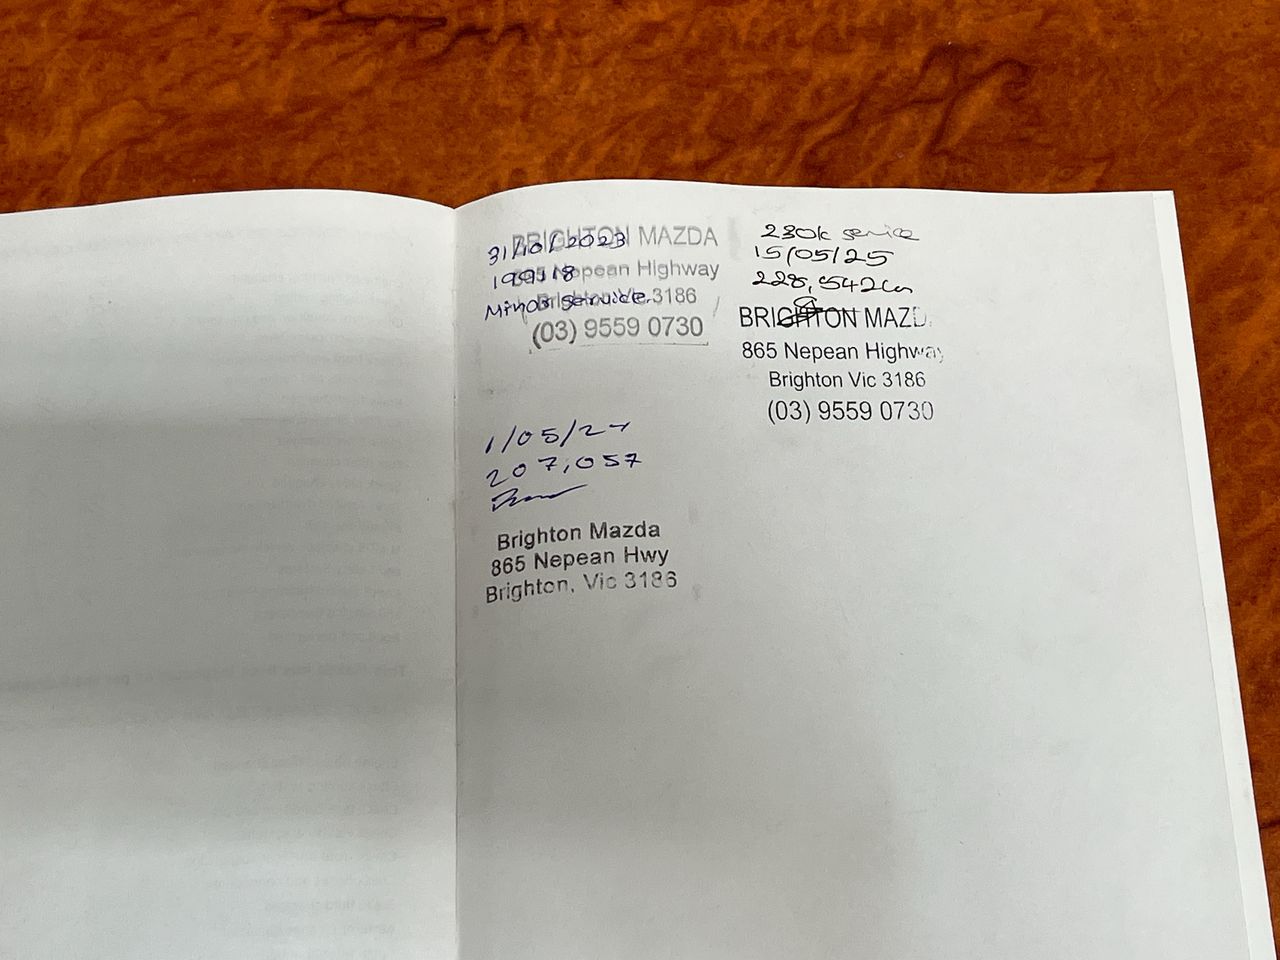 31/10/2023
BRIGHTON MAZDA
865 Nepean Highway
Minor Service.
Brighton Vic 3186
(03) 9559 0730
1/05/24
207,057
Brighton Mazda
865 Nepean Hwy
Brighton, Vic 3186
230k service
15/05/25
228,542km
BRIGHTON MAZD
865 Nepean Highway
Brighton Vic 3186
(03) 9559 0730